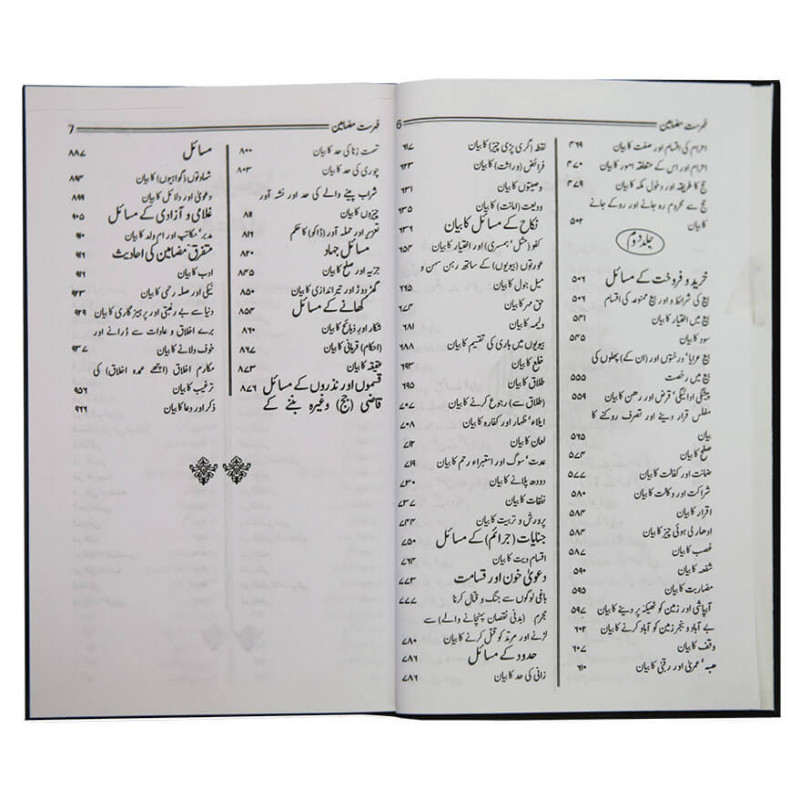 فہرست مضامین 6
احرام کی اقسام اور صفت کا بیان ۴۶۹
احرام اور اس کے متعلقہ امور کا بیان ۴۷۰
حج کا طریقہ اور دخول مکہ کا بیان ۴۷۹
حج سے محروم رہ جانے اور روکے جانے
کا بیان ۵۰۲
جلد دوم
خرید و فروخت کے مسائل ۵۰۶
بیع کی شرائط و اور بیع ممنوعہ کی اقسام ۵۰۶
بیع میں اختیار کا بیان ۵۴۱
سود کا بیان ۵۴۵
بیع عرایا‘ درختوں اور (ان کے) پھلوں کی
بیع میں رخصت ۵۵۵
پیشگی ادائیگی‘ قرض اور رهن کا بیان ۵۵۹
مفلس قرار دینے اور تصرف روکنے کا
بیان ۵۶۵
صلح کا بیان ۵۷۴
ضمانت اور کفالت کا بیان ۵۷۷
شراکت اور وکالت کا بیان ۵۸۰
اقرار کا بیان ۵۸۴
ادھار لی ہوئی چیز کا بیان ۵۸۴
غصب کا بیان ۵۸۷
شفعہ کا بیان ۵۹۰
مضاربت کا بیان ۵۹۵
آبپاشی اور زمین کو ٹھیکہ پر دینے کا بیان ۵۹۷
بے آباد و بنجر زمین کو آباد کرنے کا بیان ۶۰۲
وقف کا بیان ۶۰۷
ھبہ‘ عمریٰ اور رقبیٰ کا بیان ۶۱۰
لقطہ (گری پڑی چیز) کا بیان ۶۱۷
فرائض (وراثت) کا بیان ۶۲۳
وصیتوں کا بیان ۶۳۱
ودیعت (امانت) کا بیان ۶۳۵
نکاح کے مسائل کا بیان ۶۳۶
کفو (مثل‘ ہمسری) اور اختیار کا بیان ۶۵۴
عورتوں (بیویوں) کے ساتھ رہن سہن و
میل جول کا بیان ۶۶۵
حق مہر کا بیان ۶۷۴
ولیمہ کا بیان ۶۸۱
بیویوں میں باری کی تقسیم کا بیان ۶۸۸
خلع کا بیان ۶۹۳
طلاق کا بیان ۶۹۵
(طلاق سے) رجوع کرنے کا بیان ۷۰۷
ایلاء‘ ظہار اور کفارہ کا بیان ۷۰۸
لعان کا بیان ۷۱۲
عدت‘ سوگ اور استبراء رحم کا بیان ۷۱۹
دودھ پلانے کا بیان ۷۳۰
نفقات کا بیان ۷۳۷
پرورش و تربیت کا بیان ۷۴۴
جنایات (جرائم) کے مسائل ۷۵۰
اقسام دیت کا بیان
دعویٰ خون اور قسامت ۷۷۳
باغی لوگوں سے جنگ و قتال کرنا ۷۷۷
مجرم (بدنی نقصان پہنچانے والے) سے
لڑنے اور مرتد کو قتل کرنے کا بیان ۷۸۰
حدود کے مسائل ۷۸۶
زانی کی حد کا بیان ۷۸۶
فہرست مضامین 7
تہمت زنا کی حد کا بیان ۸۰۰
چوری کی حد کا بیان ۸۰۳
شراب پینے والے کی حد اور نشہ آور
چیزوں کا بیان ۸۱۱
تعزیر اور حملہ آور (ڈاکو) کا حکم ۸۱۷
مسائل جہاد ۸۲۰
جزیہ اور صلح کا بیان ۸۴۵
گھڑ دوڑ اور تیر اندازی کا بیان ۸۵۰
کھانے کے مسائل ۸۵۴
شکار اور ذبائح کا بیان ۸۶۰
(احکام) قربانی کا بیان ۸۶۷
عقیقہ کا بیان ۸۷۳
قسموں اور نذروں کے مسائل ۸۷۶
قاضی (جج) وغیرہ بننے کے
مسائل ۸۸۷
شہادتوں (گواہیوں) کا بیان ۸۹۳
دعویٰ اور دلائل کا بیان ۸۹۹
غلامی و آزادی کے مسائل ۹۰۵
مدبر‘ مکاتب اور ام ولد کا بیان ۹۱۰
متفرق مضامین کی احادیث ۹۱۶
ادب کا بیان ۹۱۶
نیکی اور صلہ رحمی کا بیان ۹۲۳
دنیا سے بے رغبتی اور پرہیز گاری کا بیان ۹۲۹
برے اخلاق و عادات سے ڈرانے اور
خوف دلانے کا بیان ۹۳۷
مکارم اخلاق (اچھے عمدہ اخلاق) کی
ترغیب کا بیان ۹۵۶
ذکر اور دعا کا بیان ۹۶۶